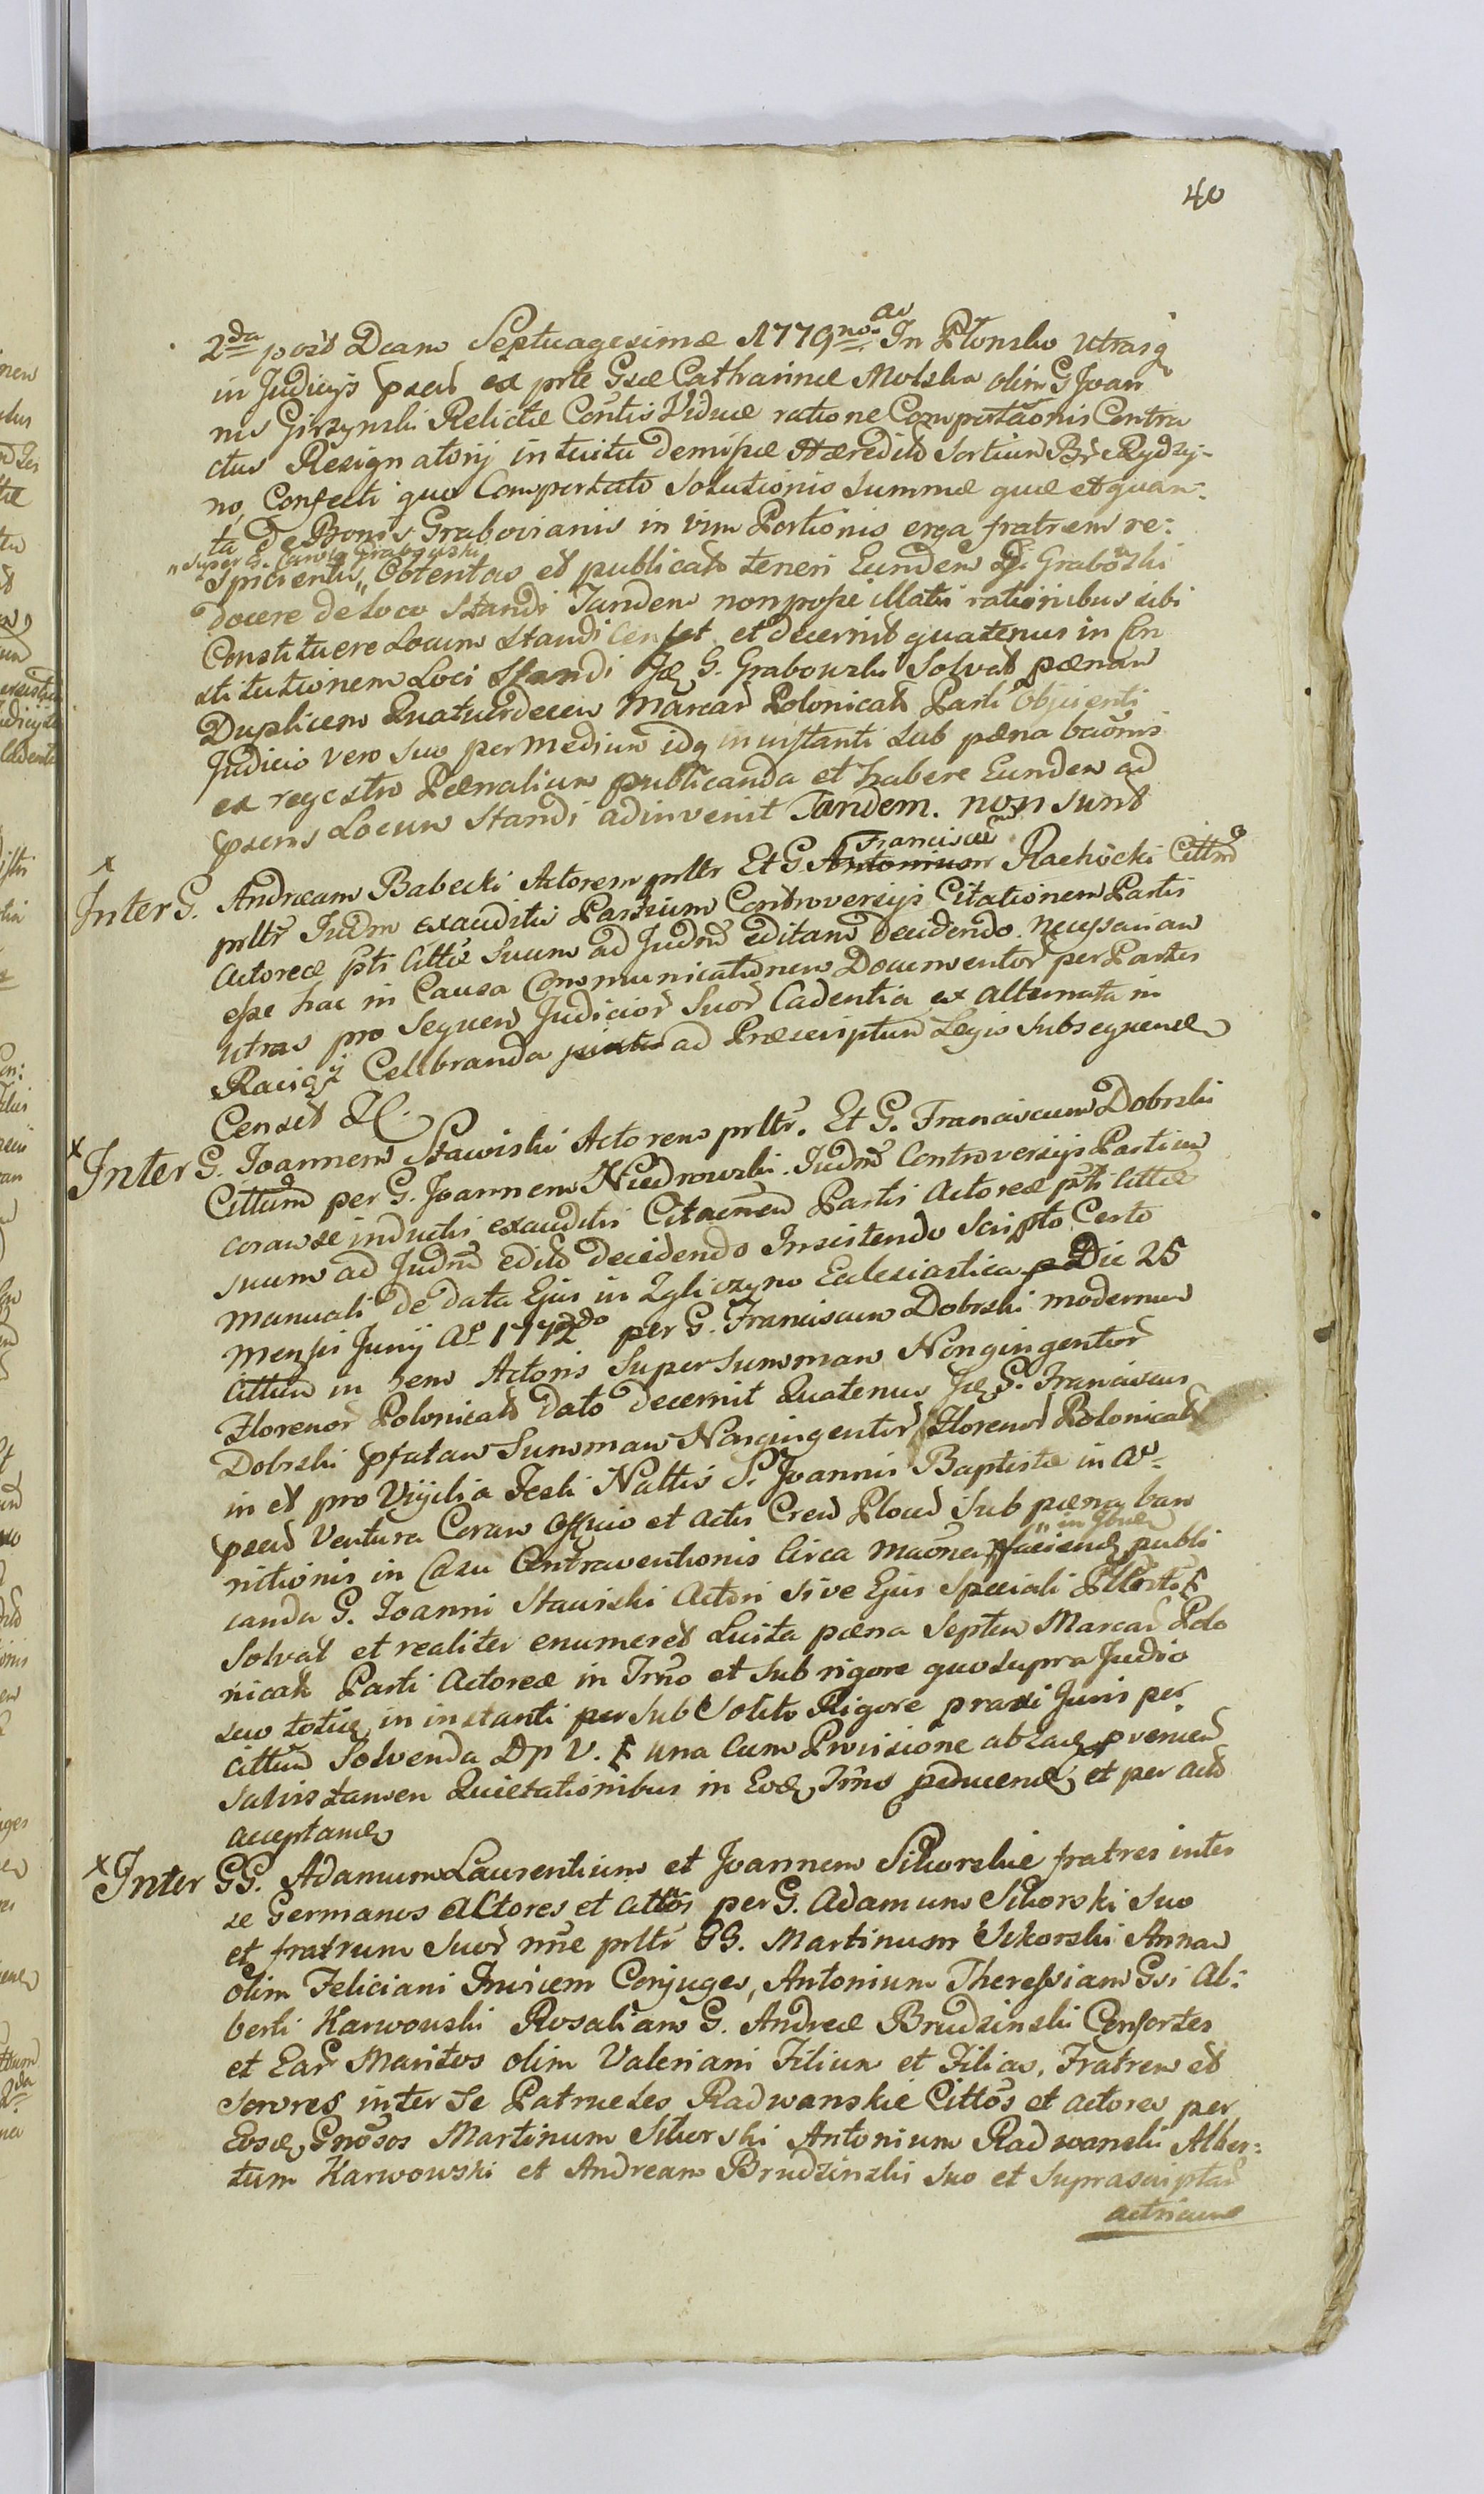 40
2da post Dcam Septuagesimæ 1779no ao In Płonsko utrasq
in Judicijs pserd ex prte Gsæ Catharinæ Molska olim G Joan
nis Girzynski Relictæ Contis Viduæ ratione Comportaonis Contra
ctus Resignatorij intuitu demissæ Hæredit Sortium Br Rydzy-
no, Confecti quo Comportato Solutionis Summæ quæ et quan:
ta de Bonis Grabovianis in vim Portionis erga fratrem re:
"Super G. Grabowski
Spicientis " Obtentas et publicat teneri Eundem G. Grabowski
docere de loco Standi Tandem non posse illatis rationibus sibi
Constituere Locum Standi Censet et decernit quatenus in Con
stitutionem Loci Standi G. Grabowski Solvat pænam
Duplicem Quatuordecem Marcar Polonicalt Parti Objicienti
Judicio vero suo per medium idq in instanti sub pæna baonis
ex regestro Pænalium publicanda et habere Eundem ad
psens Locum Standi adinvenit Tandem. non sunt
x
Franciscum
Inter G. Andream Babecki Actorem prltr Et G. Antonium Rachocki Cittm
prltr Judm exauditis Partium Controversijs Citationem Partis
Actoreæ pti Cittæ Suum ad Judm editam decidendo necessariam
esse hac in Causa Communicationem Documentor per Partes
utras pro Sequen Judicior Suor Cadentia ex alternata in
Raciąż Celebranda juxta ad Præscriptum Legis Subsequend
Censet &c.
x
Inter G. Joannem Stawiski Actorem prltr. Et G. Franciscum Dobrski
Cittum per G. Joannem Niedrowski. Judm Controversijs Partium
coram se inductis exauditis Citaonem Partis Actoreæ pti Cittæ
suum ad Judm edit decidendo Insistendo Scripto Certo
manuali de data Ejus in Zgliczyno Ecclesiastica Die 25
Mensis Junij Ao 1772do per G. Franciscum Dobrski modernum
Cittum in rem Actoris Super Summam Nongingentor
Florenor Polonicalt dato decernit Quatenus G. Franciscus
Dobrski pfatam Summam Nongingentor Florenor Polonicalt
in et pro Vigilia Festi Nattis S. Joannis Baptistæ in Ao
psend Ventura Coram Officio et Actis Cren Plocen Sub pæna ban
nitionis in Casu Contraventionis Circa maonem faciend publi
canda G. Joanni Stawiski Actori sive Ejus Speciali
Solvat et realiter enumeret Luita pæna Septem Marcar Polo
nicalt Parti Actoreæ in Trno et sub rigore quo supra Judio
suo toties in instanti per sub Solito Rigore praxi Juris per
Cittum Solvenda una Cum Provisione abzac provenien
Salvis tamen Quietationibus in Eod Trno pducend et per act
acceptand
x
Inter GG. Adamum Laurentium et Joannem Sikorskie fratres inter
se Germanos Actores et Cittos per G. Adamum Sikorski suo
et fratrum suor nne prltr GG. Martinum Sikorski Annam
Olim Feliciani Invicem Conjuges, Antonium Theressiam Gsi Al:
berti Karwowski Rosaliam G. Andreæ Brudzinski Consortes
et Ear Maritos olim Valeriani Filium et Filias, Fratrem et
Sorores inter Se Patrueles Radwanskie Cittos et Actores per
Eosd Gnosos Martinum Sikorski Antonium Radwanski Alber:
tum Karwowski et Andream Brudzinski suo et Suprascriptar
actricum